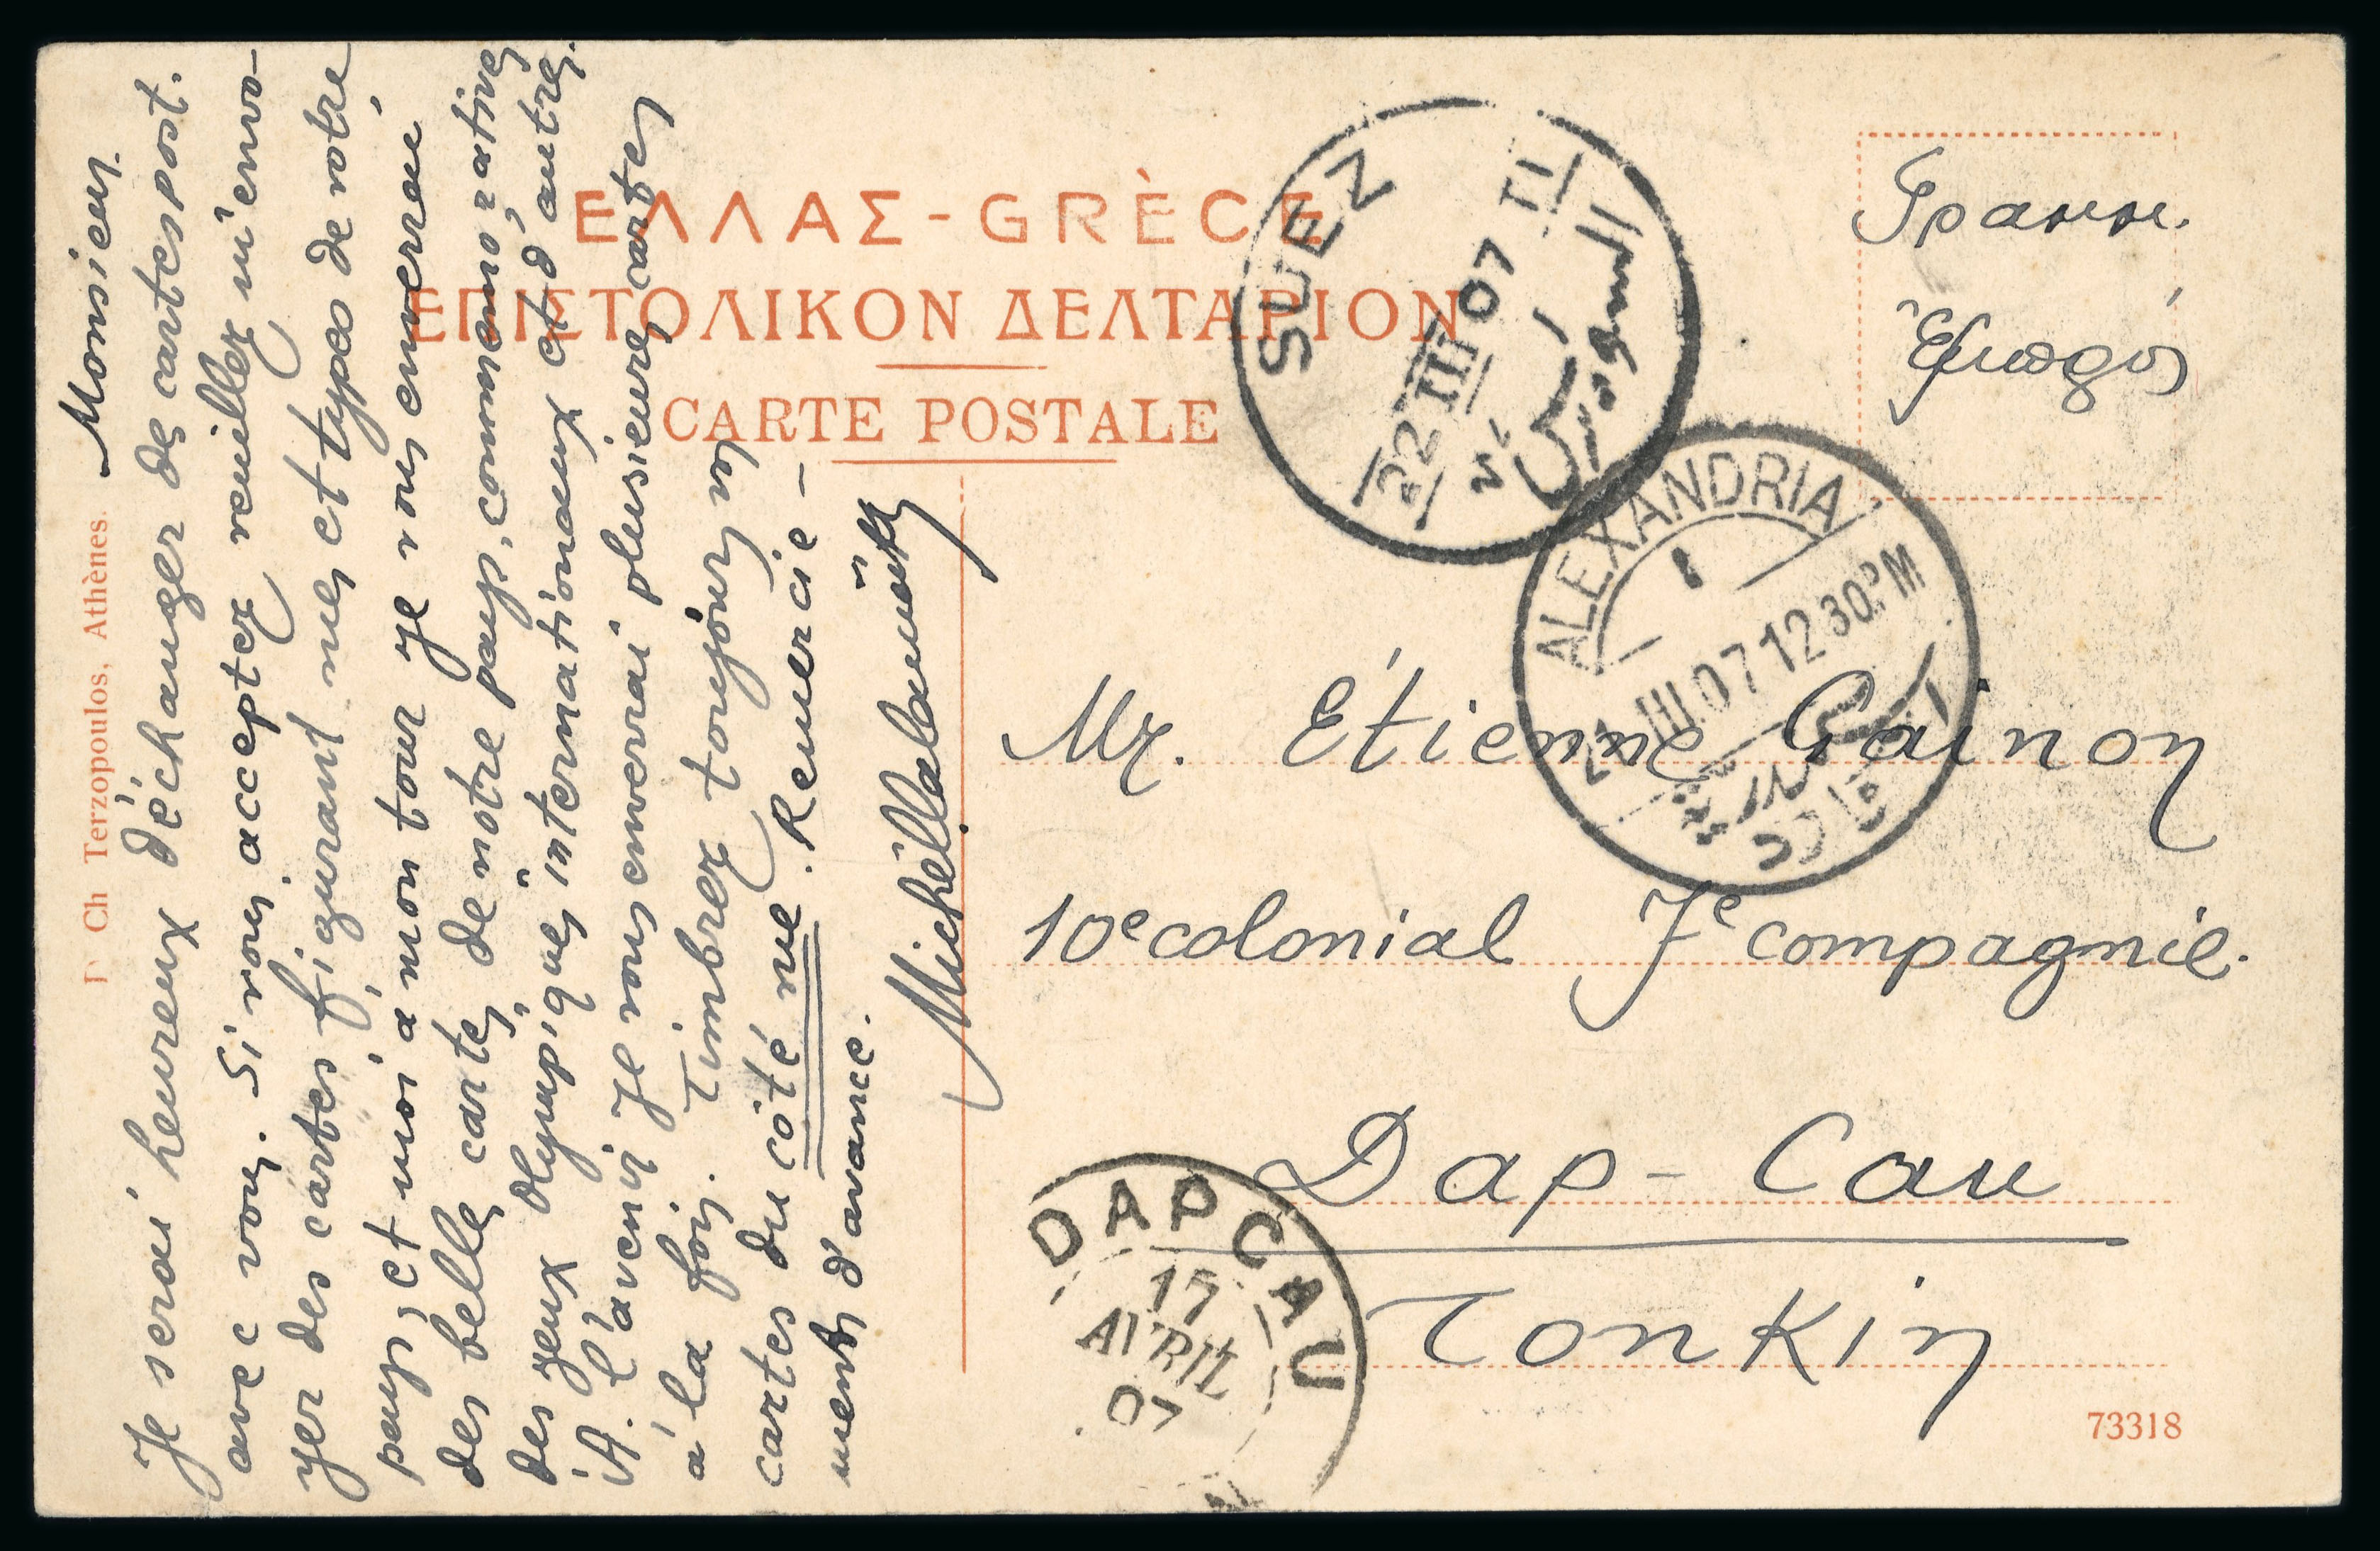 ΕΛΛΑΣ - GRÈCE
ΕΠΙΣΤΟΛΙΚΟΝ ΔΕΛΤΑΡΙΟΝ
CARTE POSTALE
Ch Terzopoulos, Athènes.
Monsieur.
Je serai heureux d'échanger des cartes post.
avec vous. Si vous acceptez veuillez m'envo-
yer des cartes figurant vues et types de votre
pays, et moi à mon tour je vous enverrai
des belles cartes de notre pays, commémoratives
des jeux olympiques internationaux et d'autres.
A l'avenir je vous enverrai plusieures cartes
à la fois. Timbrez toujours vos
cartes du côté vue. Remercie-
ments d'avance.
SUEZ
22 III 07 T I
السويس
ALEXANDRIA
III 07 12 30. PM
Mr. Étienne Gainon
10e colonial 7e compagnie.
Dap-Cau
Tonkin
DAPCAU
17
AVRIL
07
73318